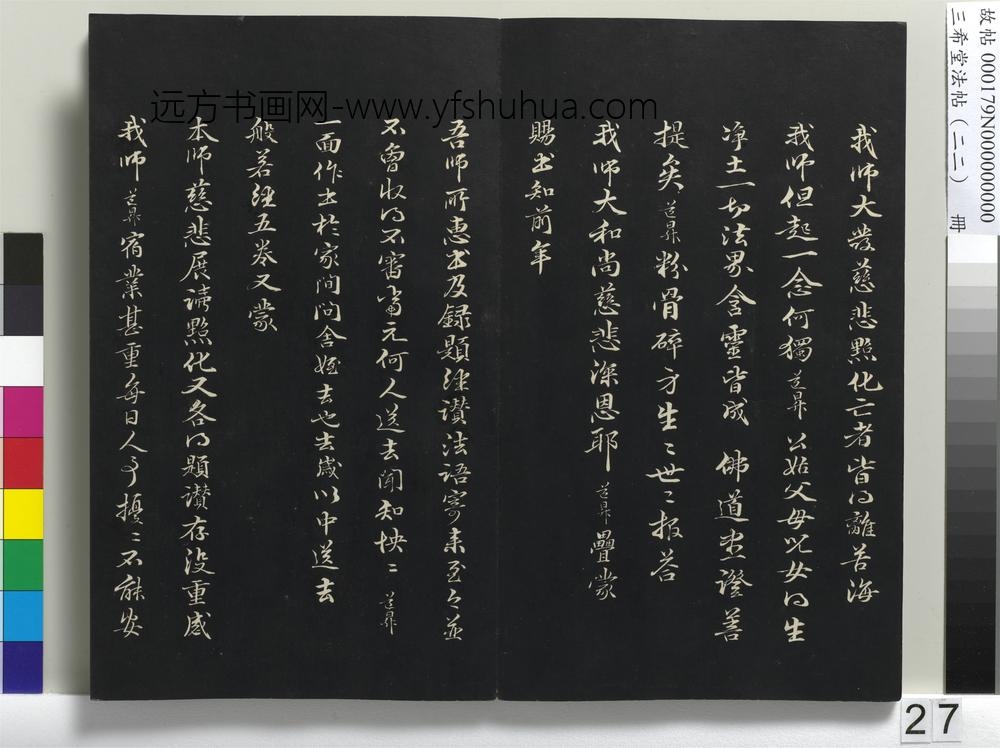 我师大发慈悲點化亡者皆得離苦海
我师但起一念何獨道昇公姑父母児女得生
净土一切法界含靈皆成 佛道盡證善
提矣道昇粉骨碎身生〻世〻报荅
我师大和尚慈悲深恩耶 道昇疊蒙
賜書知前年
吾师所惠書及録題經讃法語寄来至今並
不曾收得不審當元何人送去聞知怏〻 道昇
一面作書於家間问舍姪去也去歲以中送去
般若經五卷又蒙
本师慈悲展讀點化又各得題讃存没重感
我师 道昇宿業甚重每日人事擾〻不能安
远方书画网-www.yfshuhua.com
故帖 000179N000000000
三希堂法帖（二二） 冊
27